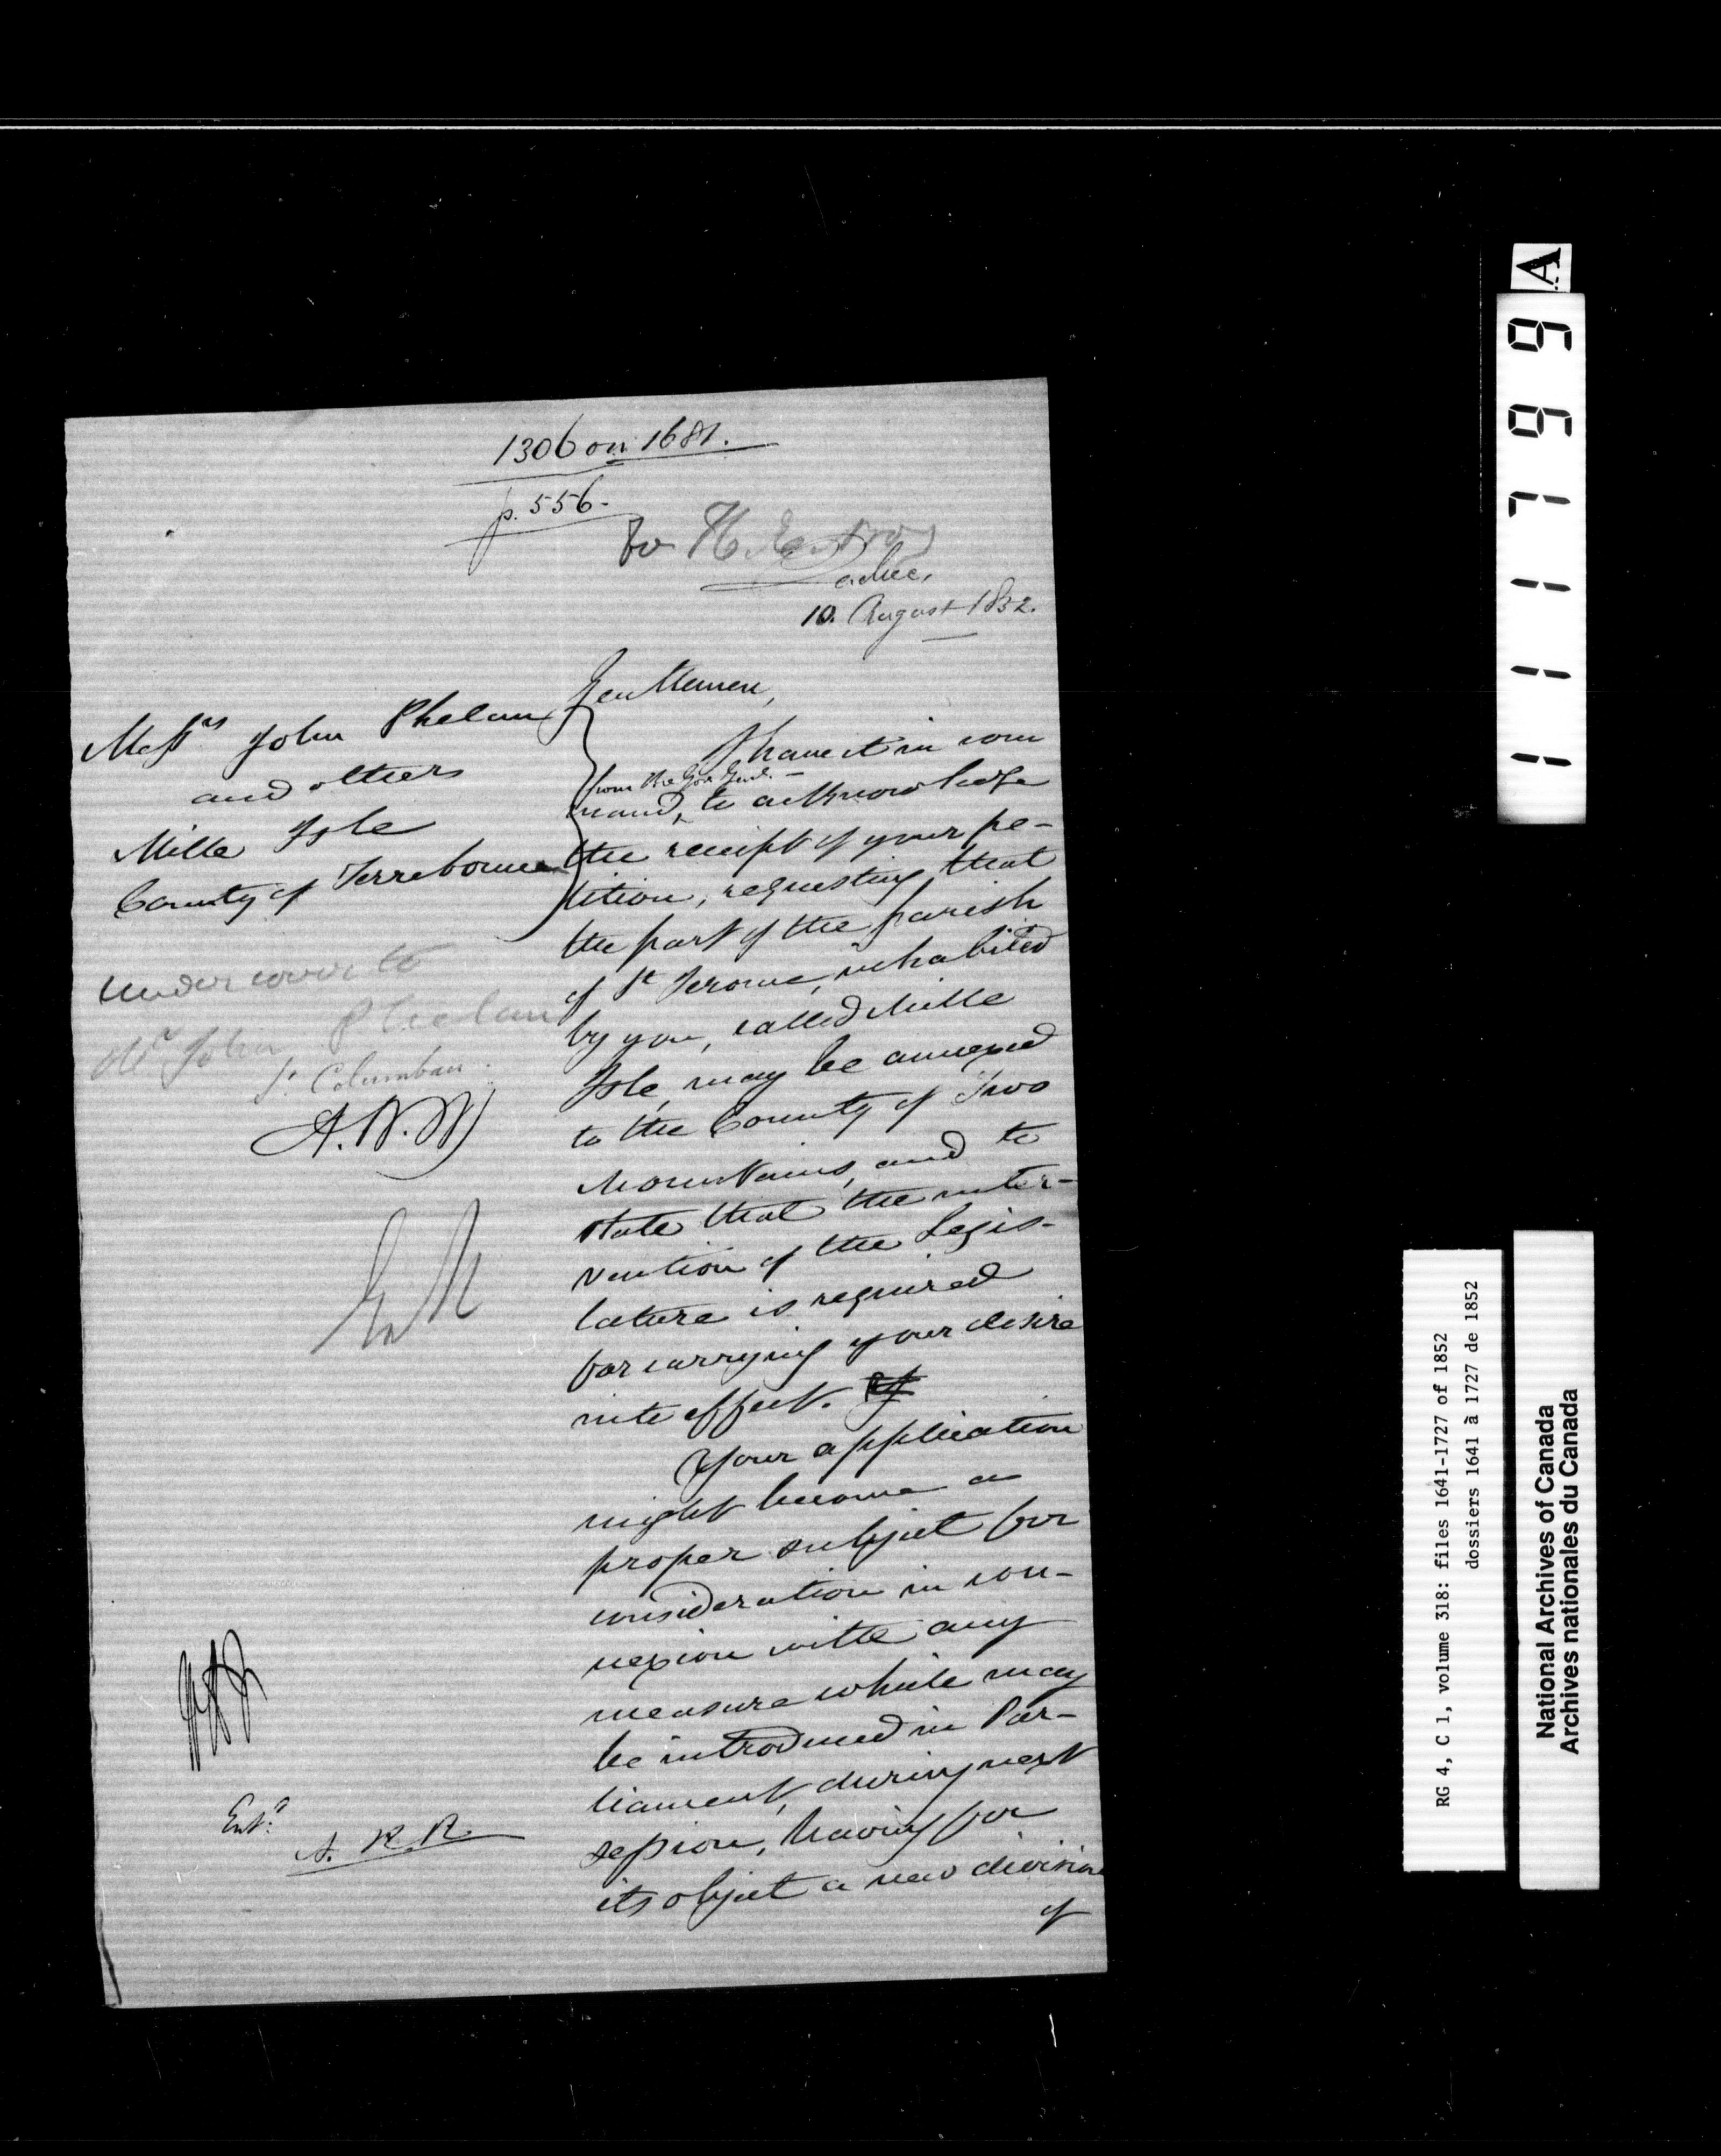 1306 on 1681.
p. 556.
To H
Quebec,
10. August 1852.
Gentlemen,
Messrs John Phelan
and others
Mille Isle
County of Terrebonne
under cover to
Mr John Phelan
St Columban.
Entd
A. R. R.
I have it in com
mand, from the Gov. Genl. to acknowledge
the receipt of your pe-
tition, requesting that
the part of the parish
of St Jerome, inhabited
by you, called Mille
Isle, may be annexed
to the County of Two
Mountains, and to
state that the inter-
vention of the Legis-
lature is required
for carrying your desire
into effect.
Your application
might become a
proper subject for
consideration in con-
nexion with any
measure which may
be introduced in Par-
liament, during next
session, having for
its object a new division
of
111799
A
RG 4, C 1, volume 318: files 1641-1727 of 1852
dossiers 1641 à 1727 de 1852
National Archives of Canada
Archives nationales du Canada